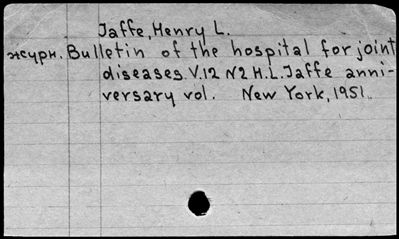 Jaffe, Henry L.
журн. Bulletin of the hospital for joint
diseases. V.12 N2 H.L. Jaffe anni-
versary vol. New York, 1951.